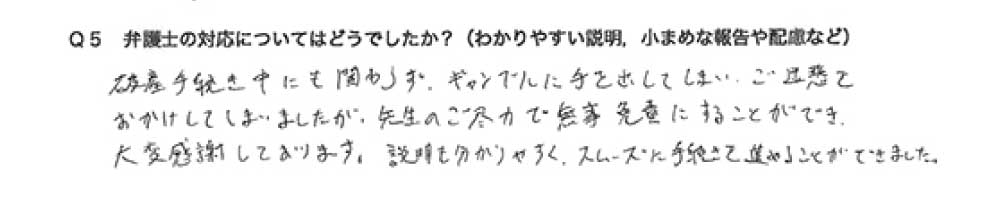 Q5 弁護士の対応についてはどうでしたか?（わかりやすい説明，小まめな報告や配慮など）
破産手続き中にも関わらず、ギャンブルに手を出してしまい、ご迷惑を
おかけしてしまいましたが、先生のご尽力で無事免責にすることができ、
大変感謝しております。説明も分かりやすく、スムーズに手続きを進めることができました。